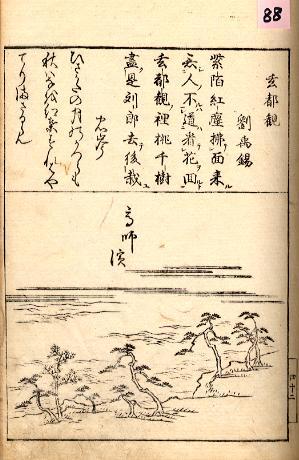 88
玄都觀
劉禹錫
紫陌紅塵拂面来
無人不道看花回
玄都觀裡桃千樹
盡是刘郎去後栽
忠岑
ひさかたの月のかつらも
秋はなを紅葉すれはや
てりまさるらん
高師濱
四十二